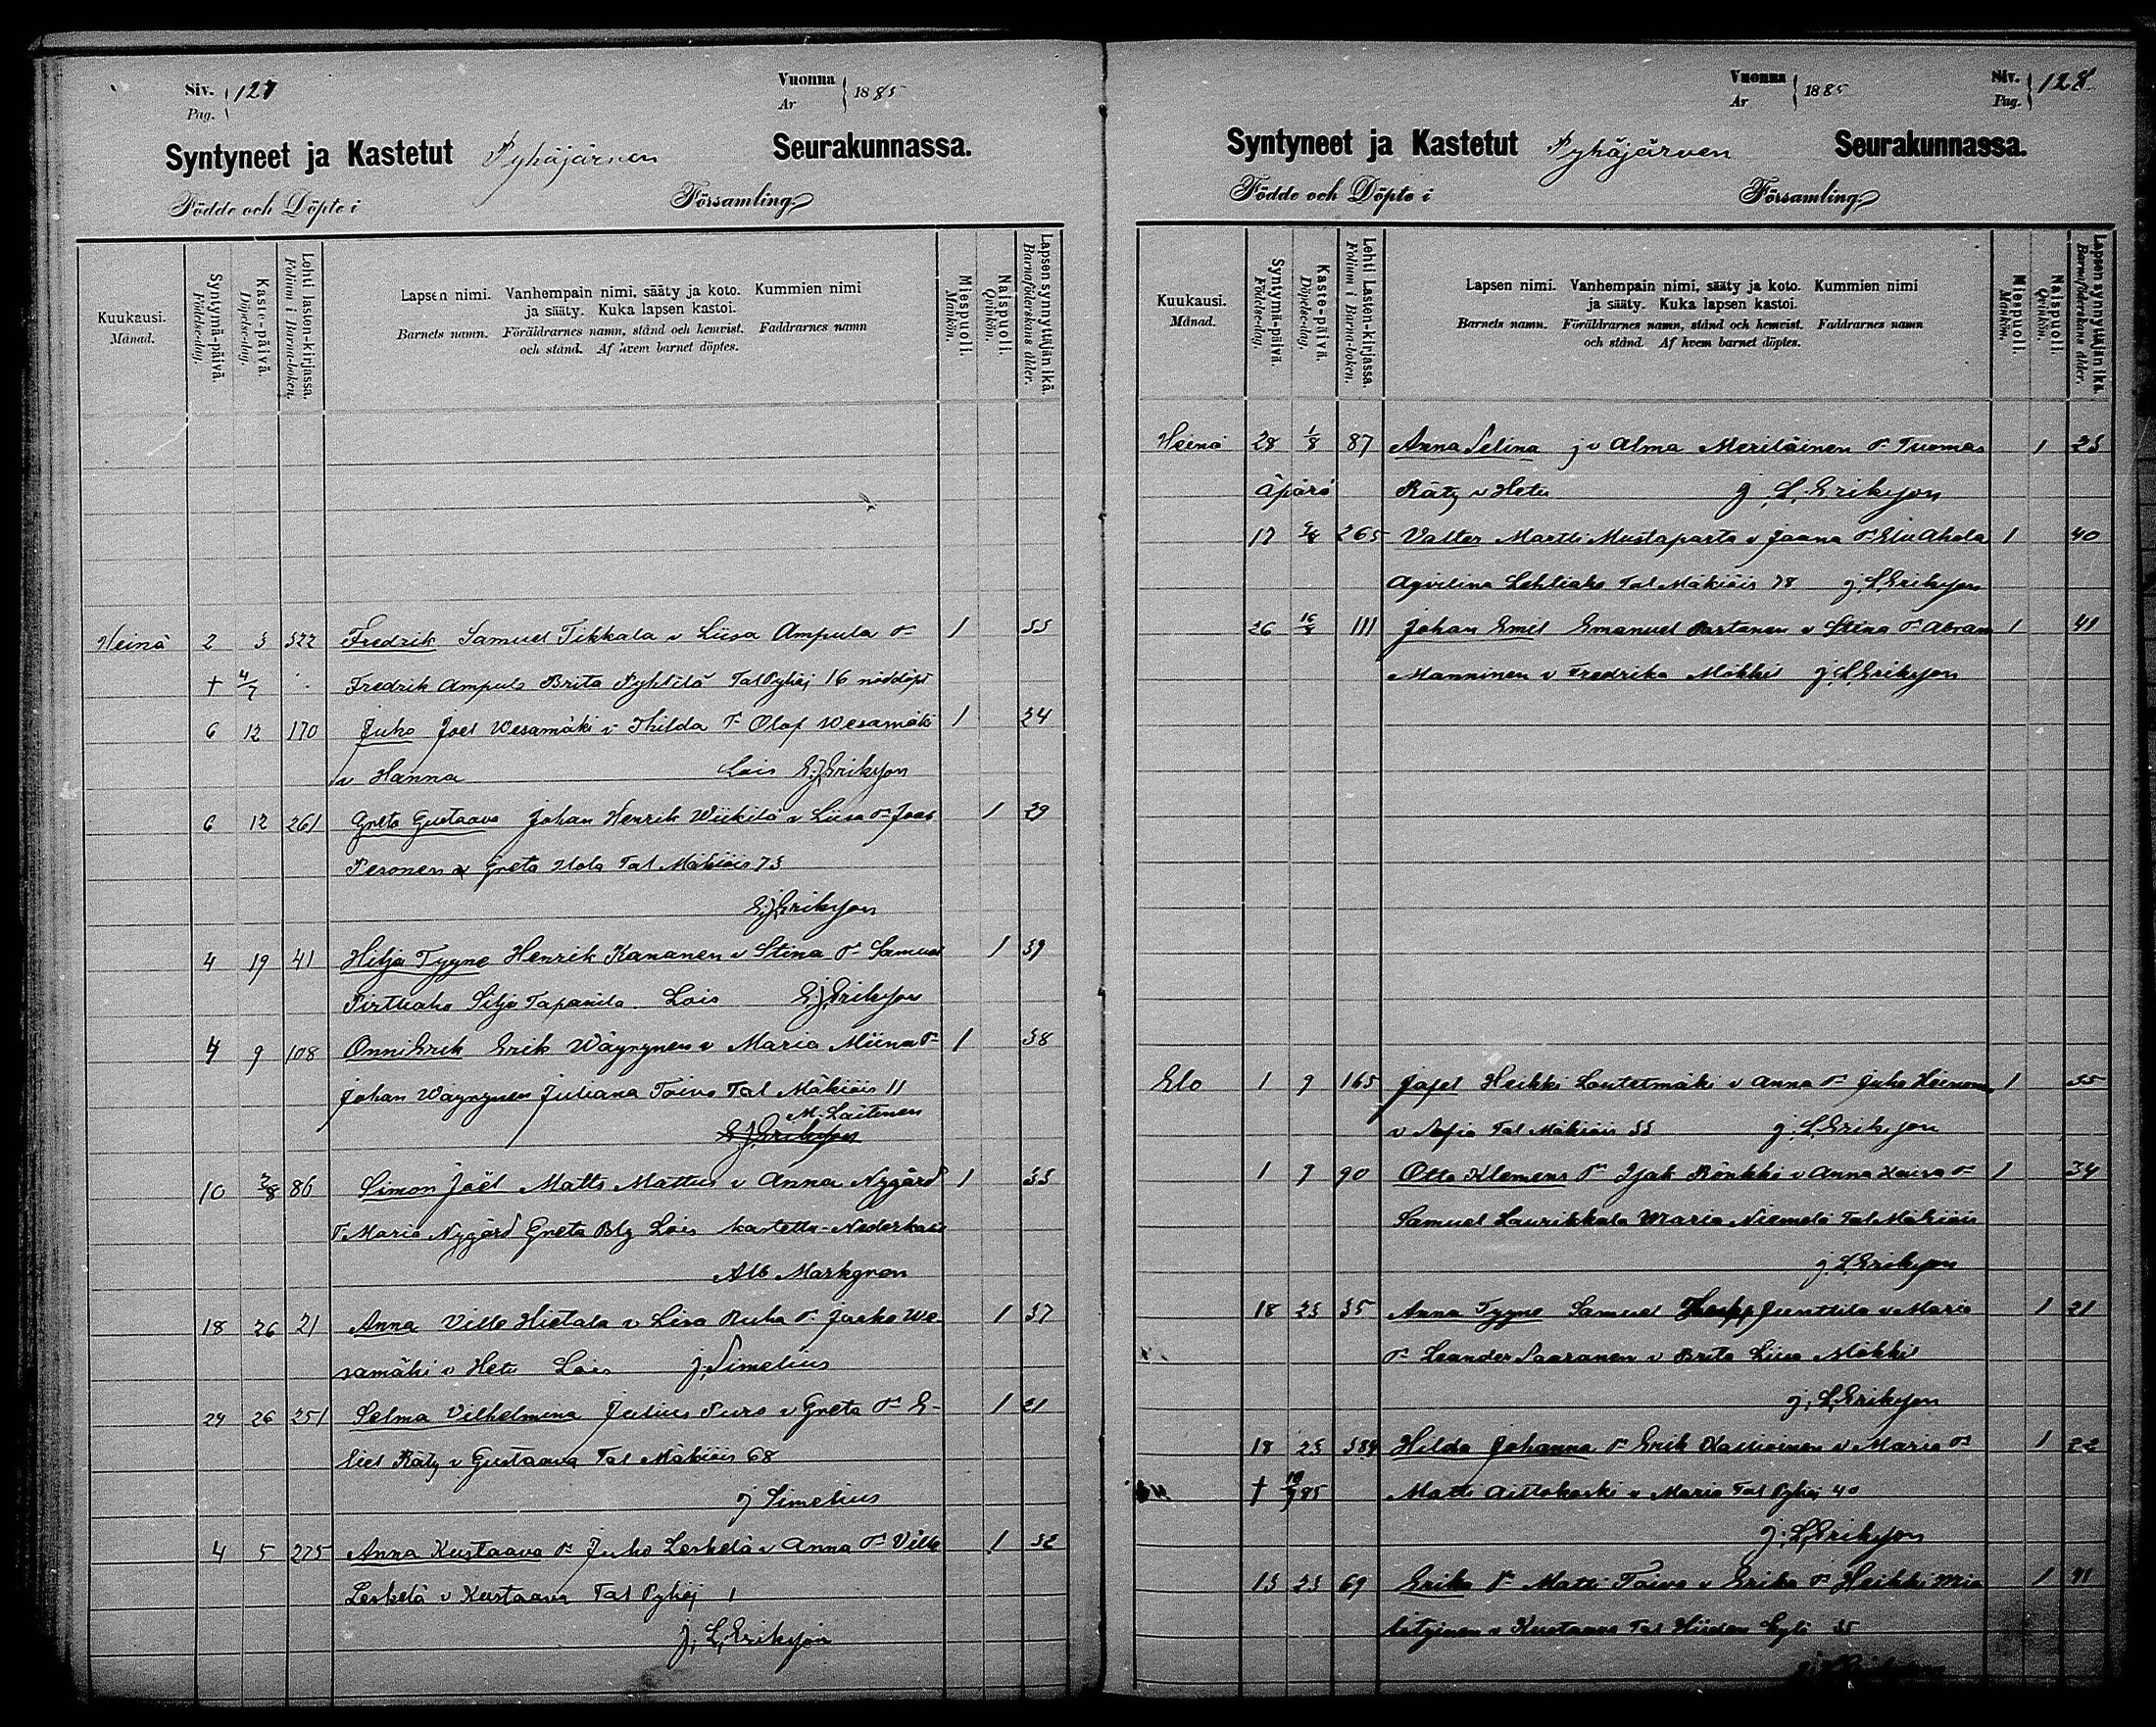 Siv. Pag. 127
Vuonna År 1885
Syntyneet ja Kastetut Pyhäjärven Seurakunnassa.
Födde och Döpte i Församling.
Kuukausi. Månad.
Syntymä-päivä. Födelse-dag.
Kaste-päivä. Döpelse-dag.
Lehti lasten-kirjassa. Folium i Barna-boken.
Lapsen nimi. Vanhempain nimi, sääty ja koto. Kummien nimi
ja sääty. Kuka lapsen kastoi.
Barnets namn. Föräldrarnes namn, stånd och hemvist. Faddrarnes namn
och stånd. Af hvem barnet döptes.
Miespuoli. Mankön.
Naispuoli. Qvinkön.
Lapsensynnyttäjän ikä. Barnaföderskans ålder.
Heinä 2 5 322 Fredrik Samuel Tikkala v Liisa Ampula 1 33
† 4/7 Fredrik Ampula Brita Pyhtilä Tal Pyhäj 16 nöddöpt
6 12 170 Juho Joel Wesamäki v Thilda T. Olof Wesamäki 1 24
v Hanna Lois E.J.Erikson
6 12 261 Greta Gustaava Johan Henrik Wiikilä v Liisa Joas 1 29
Pesonen v Greta Tal Mäkiöis 73
E.J.Erikson
4 19 41 Hilja Tyyne Henrik Kananen v Stina Samuel 1 39
Pirttiaho Silja Tapanila Lois E.J.Erikson
4 9 108 Onni Erik Erik Wäyrynen v Maria Miina 1 38
Johan Wäyrynen Juliana Toivo Tal Mäkiöis 11
M. Laitinen
E.J.Erikson
10 2/8 86 Simon Joël Matts Mattus v Anna Nygård 1 33
T. Maria Nygård Greta Lois kastettu
Alb Markgren
18 26 21 Anna Ville Hietala v Lisa Ruha Jaako We- 1 37
samäki v Hetu Lois J. Simelius
24 26 251 Selma Vilhelmina Julius Puro v Greta E- 1 21
liel Räty v Gustaava Tal Mäkiöis 68
J Simelius
4 5 275 Anna Kustaava Juho Leskelä v Anna Ville 1 32
Leskelä v Kustaava Tal Pyhäj 1
J. L. Erikson
Vuonna År 1885
Siv. Pag. 128
Syntyneet ja Kastetut Pyhäjärven Seurakunnassa.
Födde och Döpte i Församling.
Kuukausi. Månad.
Syntymä-päivä. Födelse-dag.
Kaste-päivä. Döpelse-dag.
Lehti Lasten-kirjassa. Folium i Barna-boken.
Lapsen nimi. Vanhempain nimi, sääty ja koto. Kummien nimi
ja sääty. Kuka lapsen kastoi.
Barnets namn. Föräldrarnes namn, stånd och hemvist. Faddrarnes namn
och stånd. Af hvem barnet döptes.
Miespuoli. Mankön.
Naispuoli. Qvinkön.
Lapsensynnyttäjän ikä. Barnaföderskans ålder.
Heinä 28 1/8 87 Anna Selina Alma Meriläinen Tuomas 1 23
äpärä Räty v Hetu J. L. Erikson
17 9/8 265 Valter Martti Mustaparta v Jaana Ahola 1 40
Lehtiaho Tal Mäkiöis 78 J. L. Erikson
26 111 Johan Emil Emanuel Partanen v Stina Abram 1 41
Manninen v Fredrika Mökkil J. L. Erikson
Elo 1 9 165 Jafet Heikki Lautetmäki v Anna Juho Heinonen 1 35
v Sofia Tal Mäkiöis 33 J. L. Erikson
1 9 90 Otto Klemens Isak Rönkkö v Anna 1 34
Samuel Laurikkala Maria Niemelä Tal Mäkiöis
J. L. Erikson
18 23 35 Anna Tyyne Samuel Junttila v Maria 1 21
Leander Saaranen v Brita Liisa Mökkil
J. L. Erikson
18 23 389 Hilda Johanna Erik v Maria 1 22
† Matti Aittokoski v Maria Tal Pyhäj 40
J. L. Erikson
13 23 69 Erika Matti Toivo v Erika Heikki 1 41
v Kustaava Tal Hiiden kylä 35